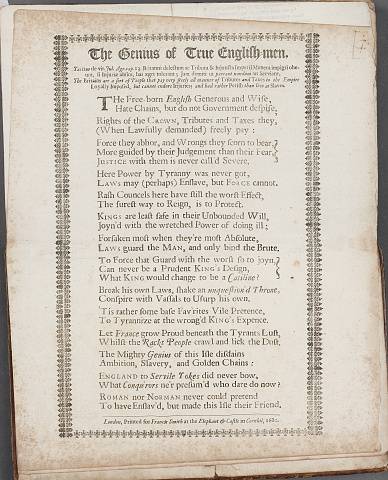 The Genius of True English-men.
Tacitus de vit. Jul. Agr. cap. 13. Britanni delectum ac Tributa & injuncta Imperii Munera impigrè obe-
unt, si Injuriæ absint, has ægrè tolerant; jam domiti ut pareant nondum ut Serviant.
The Britains are a sort of People that pay very freely all manner of Tributes and Taxes to the Empire
Loyally Imposed, but cannot endure Injuries; and had rather Perish than live as Slaves.
THe Free-born English Generous and Wise,
Hate Chains, but do not Government despise,
Rights of the CROWN, Tributes and Taxes they,
(When Lawfully demanded) freely pay:
Force they abhor, and Wrongs they scorn to bear,
More guided by their Judgement than their Fear,
JUSTICE with them is never call'd Severe.
Here Power by Tyranny was never got,
LAWS may (perhaps) Enslave, but FORCE cannot.
Rash Councels here have still the worst Effect,
The surest way to Reign, is to Protect.
KINGS are least safe in their Unbounded Will,
Joyn'd with the wretched Power of doing ill;
Forsaken most when they're most Absolute,
LAWS guard the MAN, and only bind the Brute.
To Force that Guard with the worst to joyn,
Can never be a Prudent KING's Design,
What KING would change to be a Catiline?
Break his own Laws, shake an unquestion'd Throne,
Conspire with Vassals to Usurp his own.
'Tis rather some base Fav'rites Vile Pretence,
To Tyrannize at the wrong'd KING's Expence.
Let France grow Proud beneath the Tyrants Lust,
Whilst the Rackt People crawl and lick the Dust,
The Mighty Genius of this Isle disdains
Ambition, Slavery, and Golden Chains:
ENGLAND to Servile Yokes did never bow,
What Conquerors ne'r presum'd who dare do now?
ROMAN nor NORMAN never could pretend
To have Enslav'd, but made this Isle their Friend.
London, Printed for Francis Smith at the Elephant & Castle in Cornhil, 1680.